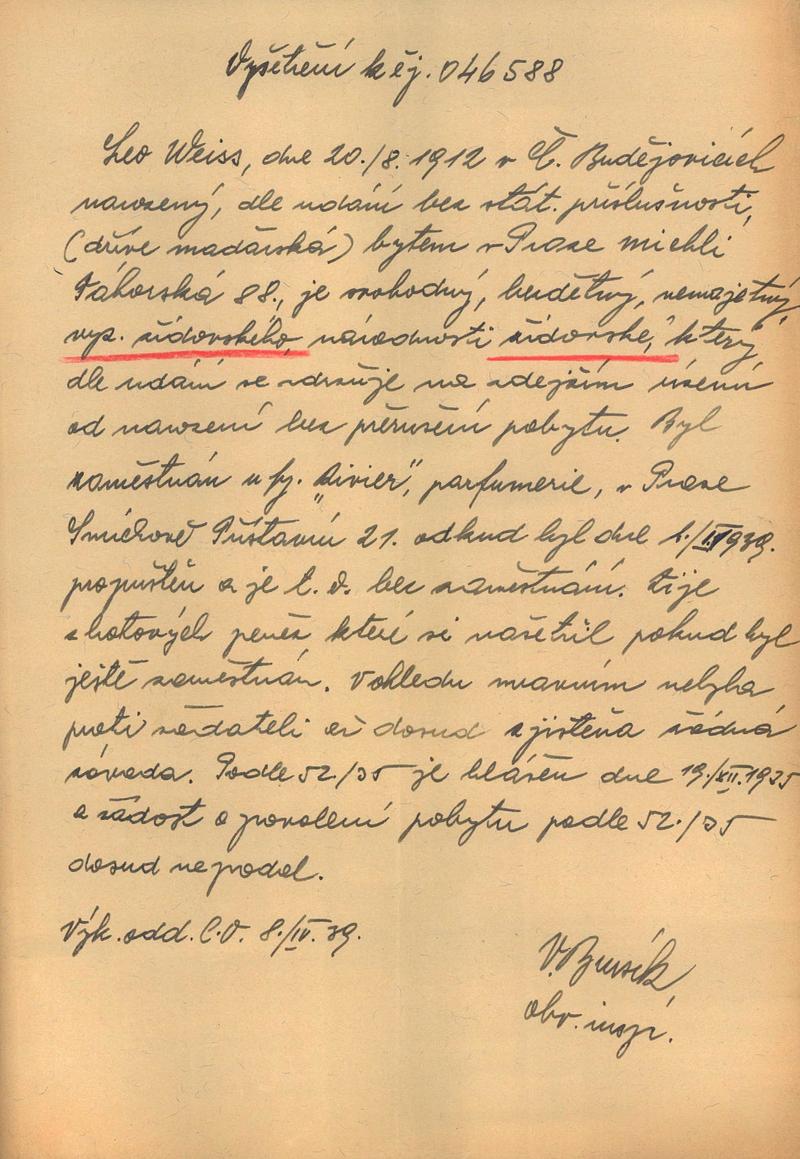 Vyšetření k čj. 046588
Leo Weiss, dne 20./8. 1912 v Č. Budějovicích
narozený, dle udání bez stát. příslušnosti,
(dříve maďarská) bytem v Praze Michli
Táborská 88., je svobodný, bezdětný, nemajetný
vyz. židovského, národnosti židovské, který
dle udání se zdržuje na zdejším území
od narození bez přerušení pobytu. Byl
zaměstnán u fy. „Rivier", parfumerie, v Praze
Smíchově Přístavní 21. odkud byl dne 1./II 1939.
propuštěn a je t. č. bez zaměstnání. Žije
z hotových peněz které si našetřil pokud byl
ještě zaměstnán. V ohledu mravním nebyla
proti žadateli až dosud zjištěna žádná
závada. Podle 52./35 je hlášen dne 19./XII. 1935
a žádost o povolení pobytu podle 52./35
dosud nepodal.
Výk. odd. 8./IV. 39.
V. Bursík
obv. insp.